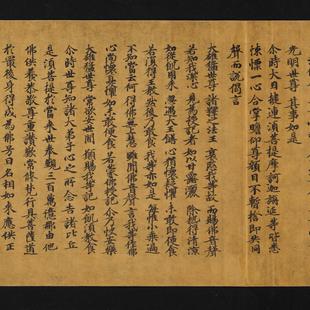 光明世尊 其事如是
尒時大目揵連須菩提摩訶迦旃延等皆悉
悚慄一心合掌瞻仰尊顏目不暫捨即共同
聲而說偈言
大雄猛世尊 諸釋之法王 哀愍我等故 而賜佛音聲
若知我深心 見為授記者 如以甘露灑 除熱得清涼
如從飢國來 忽遇大王饍 心猶懷疑懼 未敢即便食
若復得王教 然後乃敢食 我等亦如是 每惟小乘過
不知當云何 得佛無上慧 雖聞佛音聲 言我等作佛
心尚懷憂懼 如未敢便食 若蒙佛授記 尒乃快安樂
大雄猛世尊 常欲安世間 願賜我等記 如飢須教食
尒時世尊知諸大弟子心之所念告諸比丘
是須菩提於當來世奉覲三百萬億那由他
佛供養恭敬尊重讚歎常修梵行具菩薩道
於最後身得成為佛号曰名相如來應供正